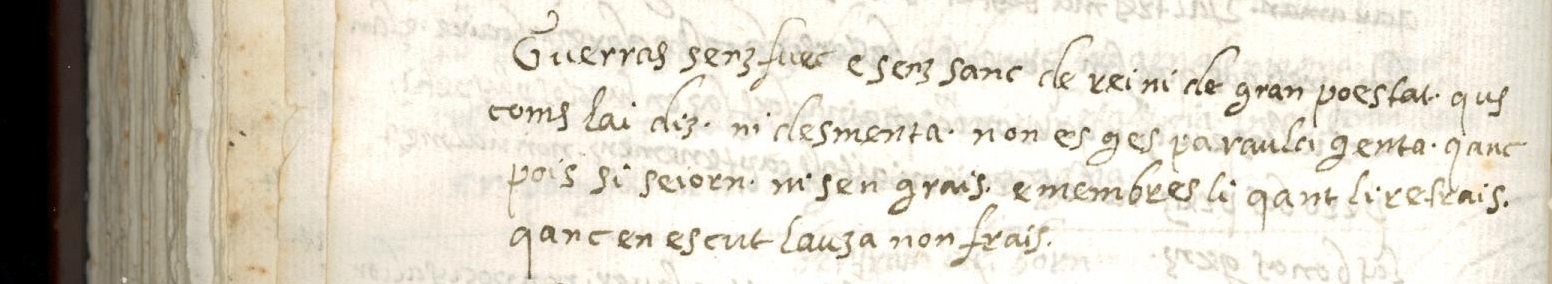 Guerras senz fuec e senz sanc de rei ni de gran poestat. qus
coms lai diz. ni desmenta. non es ges paraula genta. qanc
pois si seiorn. ni sen grais. e membres li qant li retrais.
qanc en escut lauza non frais.